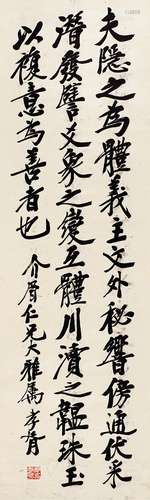 夫隱之為體義主文外秘響傍通伏采
潛發譬爻象之變互體川瀆之韞珠玉
以複意為善者也 介眉仁兄大雅屬 孝胥